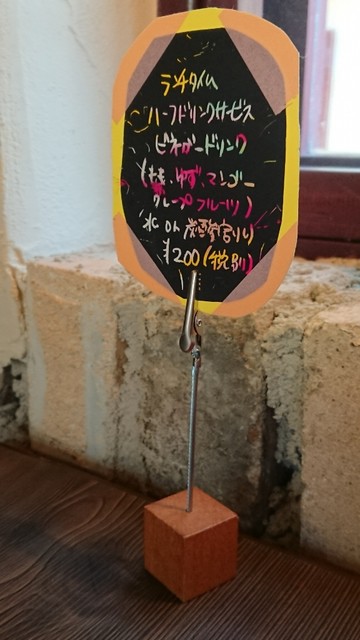 ランチタイム
ハーフドリンクサービス
ビネガードリンク
(もも、ゆず、マンゴー
グレープフルーツ)
(水 or 炭酸割り)
¥200(税別)